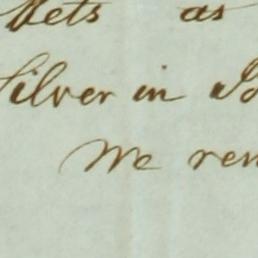 Vets as
Silver in
We ren